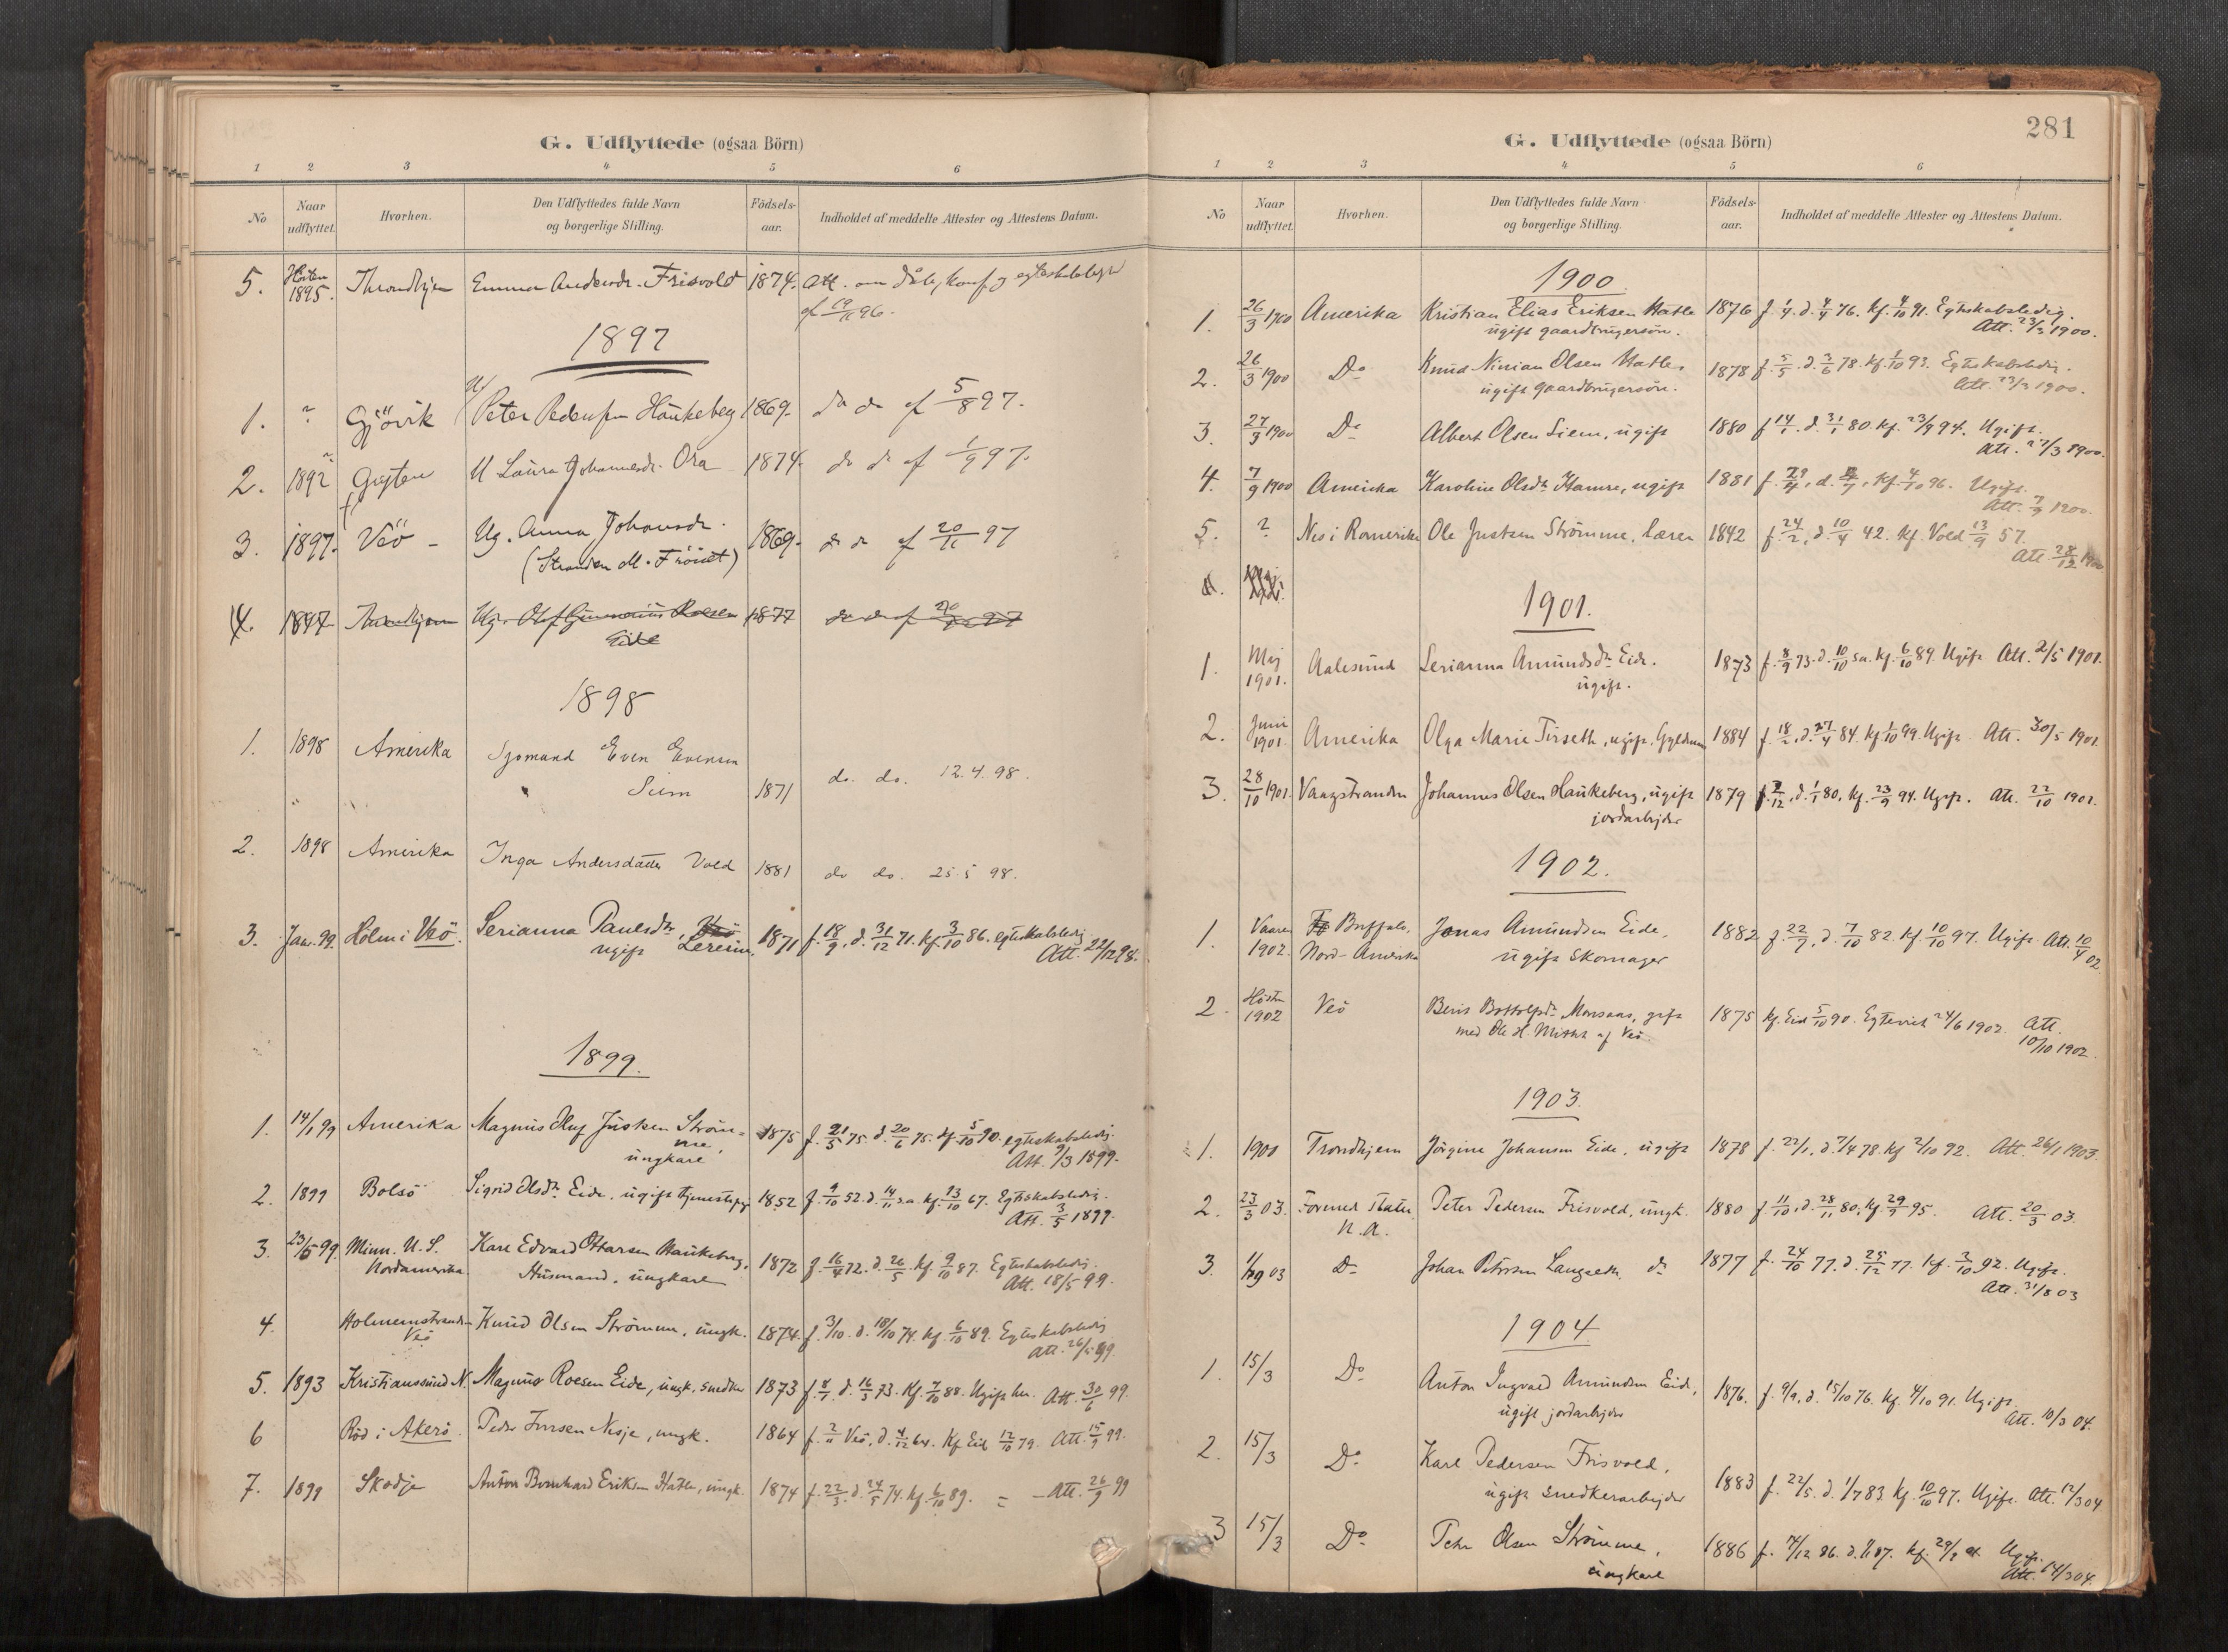 G. Udflyttede (ogsaa Börn)
1 2 3 4 5 6
No Naar udflyttet. Hvorhen. Den Udflyttedes fulde Navn og borgerlige Stilling. Födsels-aar. Indholdet af meddelte Attester og Attestens Datum.
5. Hösten 1895. Throndhjem Emma Andersdr. Frisvold 1874. Att. om dåb, konf og
af 19/11 96.
1897
1. ? Gjövik U/ Peter Pedersen Haukeberg 1869. do do af 5/8 97.
2. 1892 ? U Laura Johannesdr. Ora 1874. do do af 1/9 97.
3. 1897. Veö - Ug. Anna Johansdr. 1869. do do af 20/11 97
(Stranden
4. 1897 Throndhjem Ug. Olaf Gunnarius Roesen 1877 do do af
Eide
1898
1. 1898 Amerika Sjomand Even Evensen
Siem 1871 do. do. 12.4.98.
2. 1898 Amerika Inga Andersdatter Vold 1881 do do. 25 5 98.
3. Jan. 99. Holm i Veö. Serianna Paulsdr., Lereim. 1871 f. 18/9, d. 31/12 71. kf. 3/10 86. egteskabsledig.
ugift Att. 22/12 98.
1899.
1. 14/1 99 Amerika Magnus Oluf Justsen Ström= 1875 f. 21/5 75 d. 20/6 75. kf. 5/10 90. egteskabsledig.
me
ungkarl Att. 9/3 1899.
2. 1899 Bolsö Sigrid Olsdr. Eide. ugift tjenestepige 1852 f. 9/10 52. d. 14/11 s.a. kf. 13/10 67. Egteskabsledig.
Att. 3/5 1899.
3. 23/5 99. Minn. U.S. Kare Edvard Ottarsen Haukeberg, 1872 f. 16/4 72. d. 26/5. kf. 9/10 87. Egteskabsledig.
Nordamerika Husmand. ungkarl Att. 18/5 99.
4. Holmemstranden Knud Olsen Strömme, ungk. 1874. f. 3/10. d. 18/10 74. kf. 6/10 89. Egteskabsledig
Veö Att. 26/5 99.
5. 1893 Kristianssund N. Magnus Roesen Eide, ungk. snedker 1873 f. 8/1. d. 16/3 73. Kf. 7/10 88. Ugift her. Att. 30/6 99.
6 Röd i Akerö. Peder Iversen Nesje, ungk. 1864 f. 2/11 Veö, d. 4/12 64. Kf Eid 12/10 79. Att. 15/9 99.
7. 1899 Skodje Anton Bernhard Eriksen Hatle, ungk. 1874 f. 22/3. d. 24/5 74. kf. 6/10 89. = — Att. 26/9 99
281
G. Udflyttede (ogsaa Börn)
1 2 3 4 5 6
No Naar udflyttet. Hvorhen. Den Udflyttedes fulde Navn og borgerlige Stilling. Födsels-aar. Indholdet af meddelte Attester og Attestens Datum.
1900.
1. 26/3 1900 Amerika Kristian Elias Eriksen Hatle 1876 f. 1/4. d. 4/4 76. kf. 4/10 91. Egteskabsledig.
ugift gaardbrugersön. Att. 23/3 1900.
2. 26/3 1900 Do Knud Ninian Olsen Hatle, 1878 f. 5/5. d. 3/6 78. kf. 1/10 93. Egteskabsledig.
ugift gaardbrugersön. Att. 23/3 1900.
3. 27/3 1900 Do Albert Olsen Siem, ugift 1880 f 14/1. d. 31/1 80. kf. 23/9 94. Ugift.
Att. 27/3 1900.
4. 7/9 1900 Amerika Karoline Olsdr. Hamre, ugift 1881 kf. 4/10 96. Ugift.
Att. 7/9 1900.
5. ? Nes i Romerike Ole Justsen Strömme, lærer 1842 f. 24/2, d. 10/4 42. Kf. Vold 13/9 57.
Att. 28/12 1900
1901.
1. Maj 1901. Aalesund Serianna Amundsdr. Eide. 1873 f. 8/9 73. d. 10/10 s.a. kf. 6/10 89. Ugift Att. 2/5 1901.
ugift.
2. Juni 1901 Amerika Olga Marie Tirseth, ugift, 1884 f. 18/2, d. 27/4 84. kf. 1/10 99. Ugift. Att. 30/5 1901.
3. 28/10 1901. Vaagstranden Johannes Olsen Haukeberg, ugift 1879 f. 7/12, d. 1/1 80, kf. 23/9 94. Ugift. Att. 22/10 1901.
jordarbejder
1902.
1. Vaaren 1902. Buffalo, Jonas Amundsen Eide, 1882 f. 22/7, d. 7/10 82. kf. 10/10 97. Ugift. Att. 10/4 02.
Nord-Amerika ugift Skomager
2. Hösten 1902 Veö Berit Bottolfsdr. Monsaas, gift 1875 kf. Eid 5/10 90. Egteviet 24/6 1902. Att.
med Ole H. af Veö. 10/10 1902.
1903.
1. 1900 Trondhjem Jörgine Johansen Eide, ugift 1878 f. 22/1, d. 7/4 78. kf 2/10 92. Att. 26/1 1903.
2. 23/3 03. Forened Stater Peter Pedersen Frisvold, ungk. 1880 f. 11/10, d. 28/11 80, kf. 29/9 95. Att. 20/3 03.
N.A.
3. 03 Do Johan Petersen Langseth, do 1877 f. 24/10 77. d. 25/12 77. kf. 3/10 92. Ugift.
Att. 31/8 03
1904
1. 15/3 Do Anton Ingvald Amundsen Eide, 1876. f. 9/9, d. 15/10 76. kf. 4/10 91. Ugift.
ugift jordarbejder Att. 10/3 04.
2. 15/3 Do Karl Pedersen Frisvold, 1883 f. 22/5. d. 1/7 83. kf. 10/10 97. Ugift. Att. 12/3 04
ugift snedkerarbejder
3 15/3 Do Peter Olsen Strömme, 1886 f. 14/12 86. kf. Ugift.
ungkarl Att. 14/3 04.